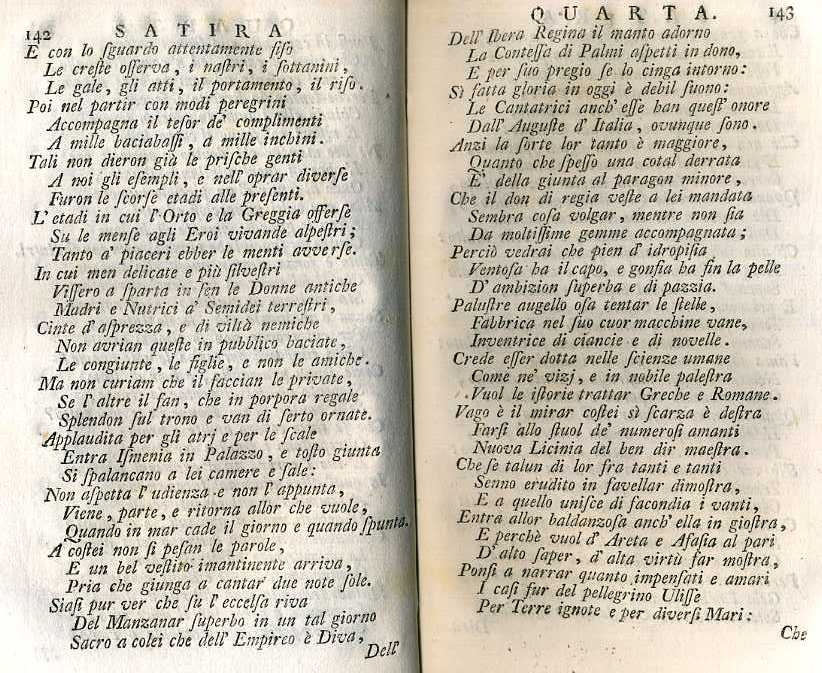 142 SATIRA
E con lo ſguardo attentamente fiſo
Le creſte oſſerva, i naſtri, i ſottanini,
Le gale, gli atti, il portamento, il riſo.
Poi nel partir con modi peregrini
Accompagna il teſor de' complimenti
A mille baciabaſſi, a mille inchini.
Tali non dieron già le priſche genti
A noi gli eſempli, e nell' oprar diverſe
Furon le ſcorſe etadi alle preſenti.
L' etadi in cui l' Orto e la Greggia offerſe
Su le menſe agli Eroi vivande alpeſtri;
Tanto a' piaceri ebber le menti avverſe.
In cui men delicate e più ſilveſtri
Viſſero a ſparta in ſen le Donne antiche
Madri e Nutrici a' Semidei terreſtri,
Cinte d' aſprezza, e di viltà nemiche
Non avrian queſte in pubblico baciate,
Le congiunte, le figlie, e non le amiche.
Ma non curiam che il faccian le private,
Se l' altre il fan, che in porpora regale
Splendon ſul trono e van di ſerto ornate.
Applaudita per gli atrj e per le ſcale
Entra Iſmenia in Palazzo, e toſto giunta
Si ſpalancano a lei camere e ſale:
Non aſpetta l' udienza e non l' appunta,
Viene, parte, e ritorna allor che vuole,
Quando in mar cade il giorno e quando ſpunta.
A coſtei non ſi peſan le parole,
E un bel veſtito imantinente arriva,
Pria che giunga a cantar due note ſole.
Siaſi pur ver che ſu l' eccelſa riva
Del Manzanar ſuperbo in un tal giorno
Sacro a colei che dell' Empireo è Diva,
Dell'
QUARTA. 143
Dell' Ibera Regina il manto adorno
La Conteſſa di Palmi aſpetti in dono,
E per ſuo pregio ſe lo cinga intorno:
Sì fatta gloria in oggi è debil ſuono:
Le Cantatrici anch' eſſe han queſt' onore
Dall' Auguſte d' Italia, ovunque ſono.
Anzi la ſorte lor tanto è maggiore,
Quanto che ſpeſſo una cotal derrata
E' della giunta al paragon minore,
Che il don di regia veſte a lei mandata
Sembra coſa volgar, mentre non ſia
Da moltiſſime gemme accompagnata;
Perciò vedrai che pien d' idropiſia
Ventoſa ha il capo, e gonfia ha fin la pelle
D' ambizion ſuperba e di pazzia.
Paluſtre augello oſa tentar le ſtelle,
Fabbrica nel ſuo cuor macchine vane,
Inventrice di ciancie e di novelle.
Crede eſſer dotta nelle ſcienze umane
Come ne' vizj, e in nobile paleſtra
Vuol le iſtorie trattar Greche e Romane.
Vago è il mirar coſtei sì ſcarza è deſtra
Farſi allo ſtuol de' numeroſi amanti
Nuova Licinia del ben dir maeſtra.
Che ſe talun di lor fra tanti e tanti
Senno erudito in favellar dimoſtra,
E a quello uniſce di facondia i vanti,
Entra allor baldanzoſa anch' ella in gioſtra,
E perchè vuol d' Areta e Aſaſia al pari
D' alto ſaper, d' alta virtù far moſtra,
Ponſi a narrar quanto impenſati e amari
I caſi fur del pellegrino Uliſſe
Per Terre ignote e per diverſi Mari:
Che